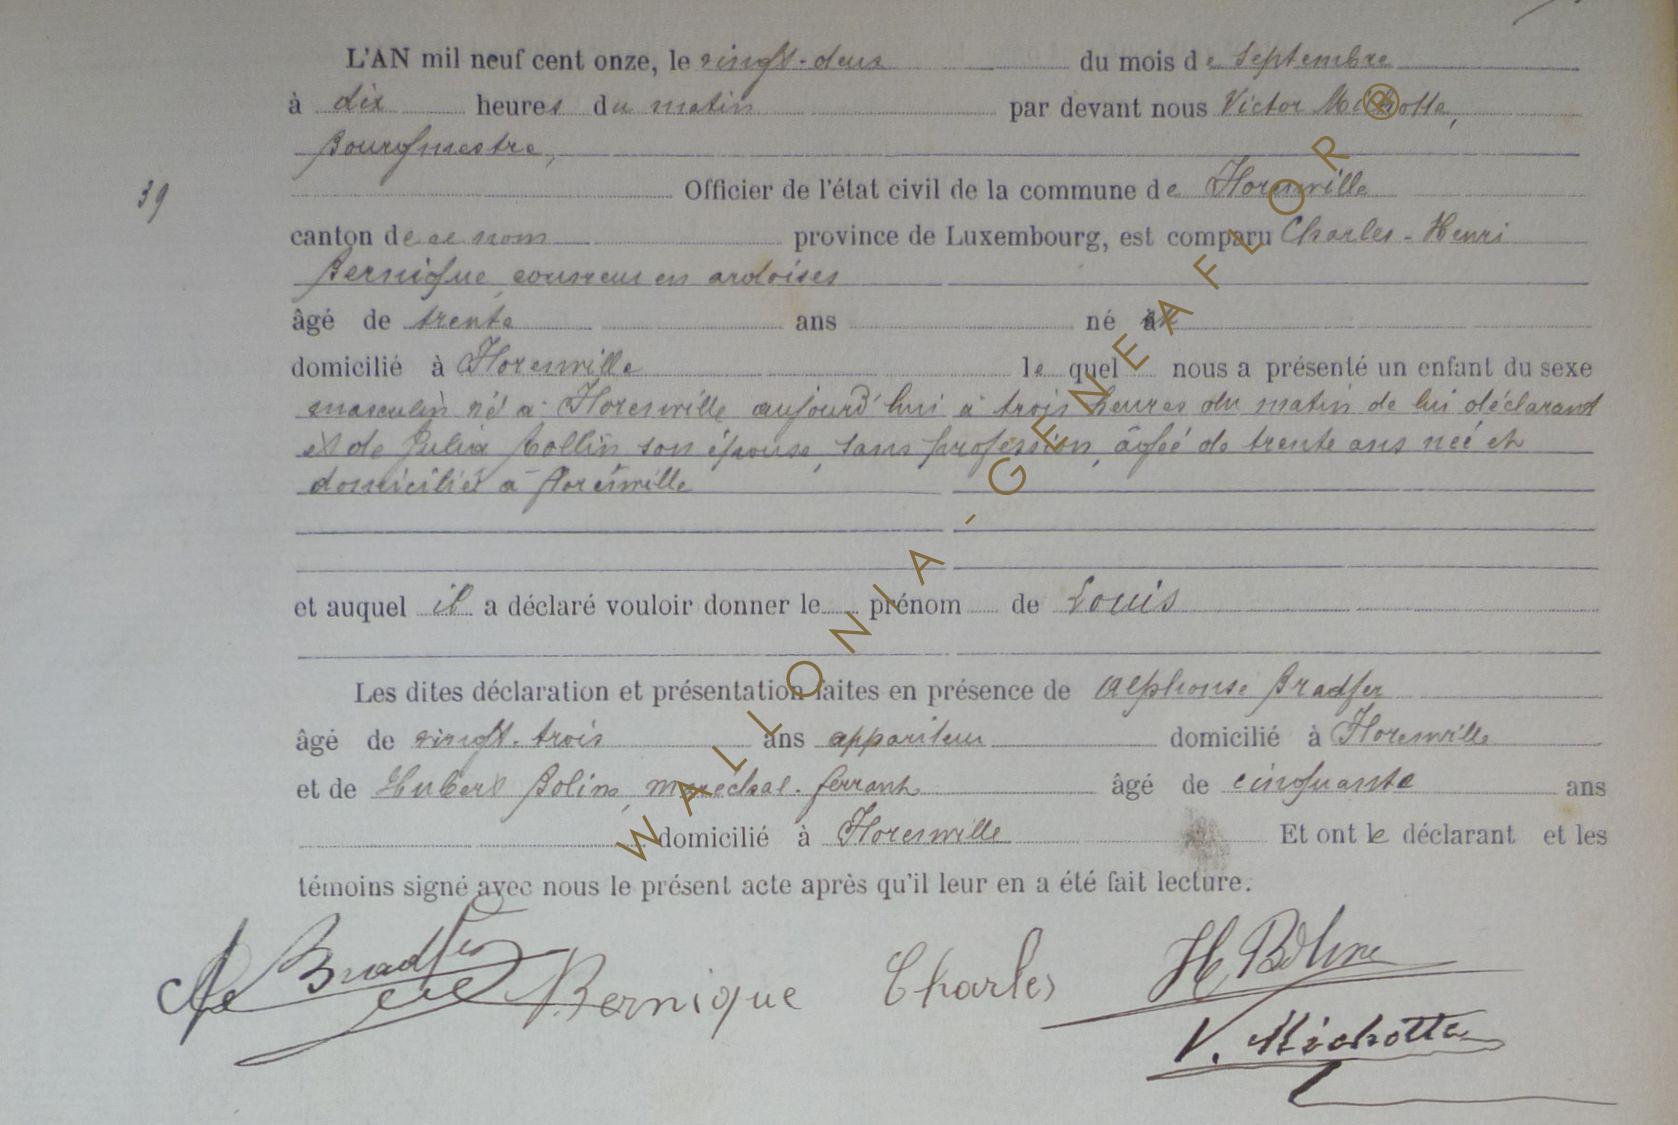 L'AN mil neuf cent onze, le vingt-deux du mois de Septembre
à dix heures du matin par devant nous Victor Michotte,
Bourgmestre,
39 Officier de l'état civil de la commune de Florenville
canton de ce nom province de Luxembourg, est comparu Charles-Henri
Bernique, couvreur en ardoises
âgé de trente ans né à
domicilié à Florenville le quel nous a présenté un enfant du sexe
masculin né à Florenville aujourd'hui à trois heures du matin de lui déclarant
et de Julia Collin son épouse, sans profession, âgée de trente ans née et
domiciliée à Florenville
et auquel il a déclaré vouloir donner le prénom de Louis
Les dites déclaration et présentation faites en présence de Alphonse Bradfer
âgé de vingt-trois ans appariteur domicilié à Florenville
et de Hubert Bolins, maréchal-ferrant âgé de cinquante ans
domicilié à Florenville Et ont le déclarant et les
témoins signé avec nous le présent acte après qu'il leur en a été fait lecture.
Bradfer Bernique Charles H. Boline
V. Michotte
WALLONIA - GENEAFLOR ®